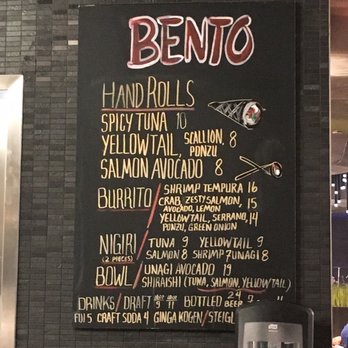 BENTO
HAND ROLLS
SPICY TUNA 10
YELLOWTAIL, SCALLION, PONZU 8
SALMON AVOCADO 8
BURRITO / SHRIMP TEMPURA 16
CRAB, ZESTY SALMON, 15
AVOCADO, LEMON
YELLOWTAIL, SERRANO, 14
PONZU, GREEN ONION
NIGIRI / TUNA 9 YELLOWTAIL 9
(2 PIECES) SALMON 8 SHRIMP 7 UNAGI 8
BOWL / UNAGI AVOCADO 19
SHIRAISHI (TUNA, SALMON, YELLOWTAIL)
DRINKS / DRAFT BOTTLED 24
FIJI 5 CRAFT SODA 4 GINGA KOGEN / STEIGL